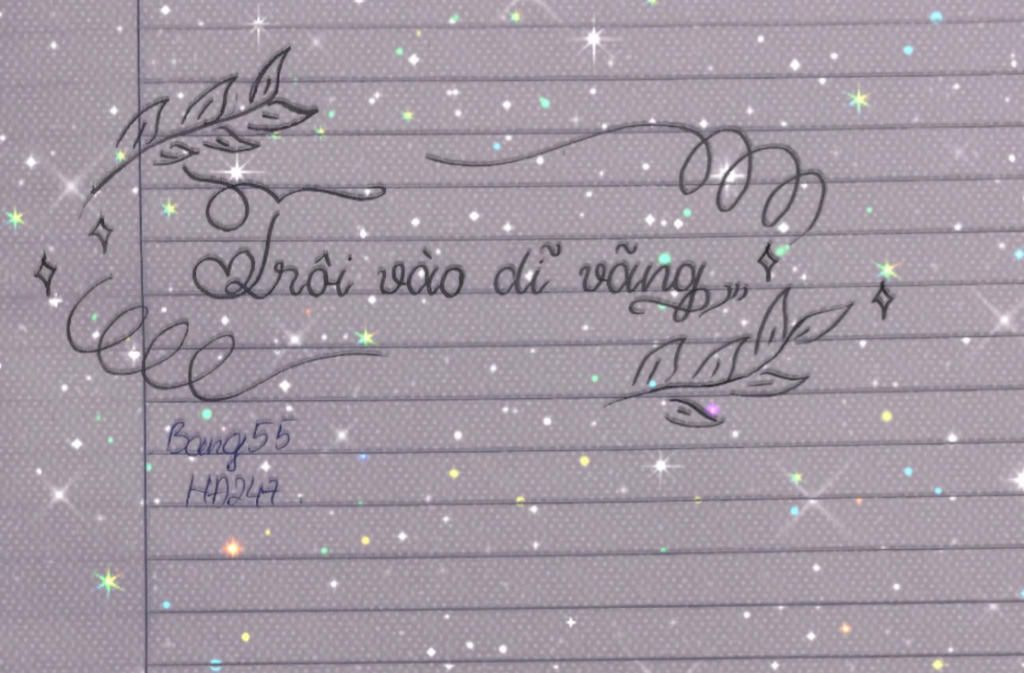 Trôi vào dĩ vãng
Bang55
HD247